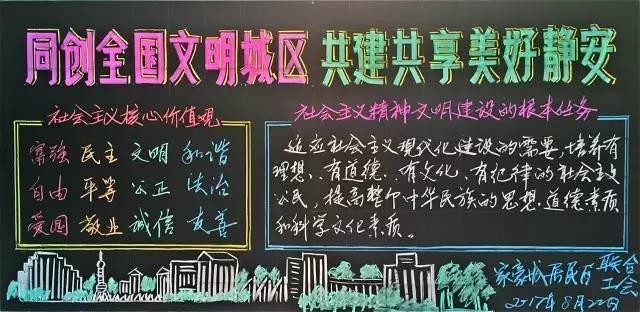 同创全国文明城区 共建共享美好静安
社会主义核心价值观
富强 民主 文明 和谐
自由 平等 公正 法治
爱国 敬业 诚信 友善
社会主义精神文明建设的根本任务
适应社会主义现代化建设的需要,培养有
理想、有道德、有文化、有纪律的社会主义
公民,提高整个中华民族的思想道德素质
和科学文化素质。
家豪城居民区联合
工会
2017年8月22日